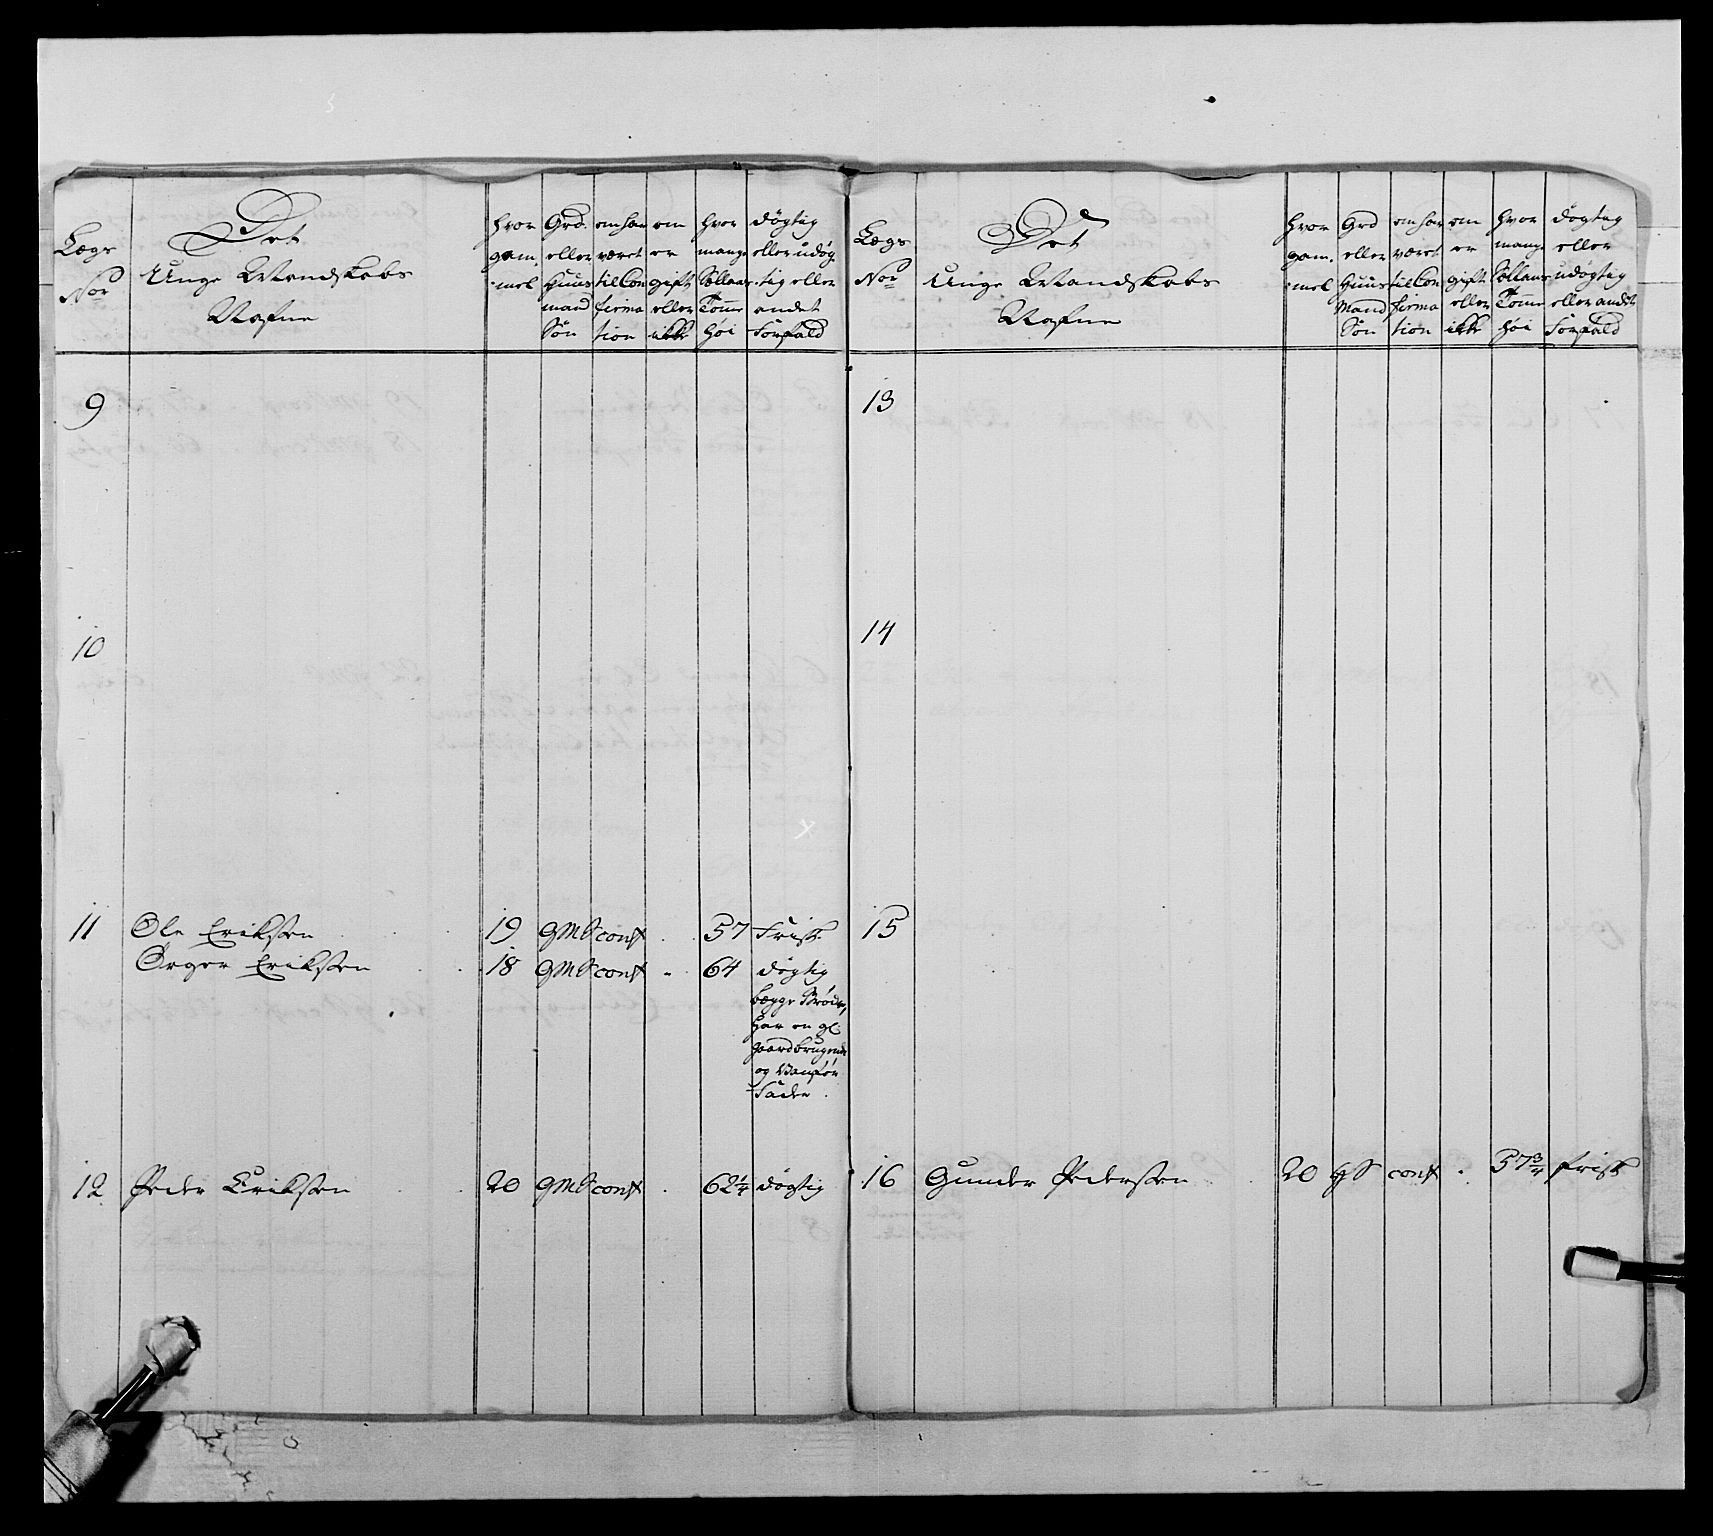 Lægs
No
Det
Unge Mandskabs
Nafne
hvor
gam-
mel
Grd.
eller
Huus
mand
Søn
om har
været
til Con
firma
tion
om
er
gift
eller
ikke
hvor
mange
Sællans
Tomme
høi
døgtig
eller udøg
tig eller
andet
Forfald
9
10
11 Ole Eriksen 19 GMS conf 57 Frisk
Örger Eriksen 18 GMS conf 64 døgtig
begge Brødre,
har en gl.
gaardbrugende
og Vanför
Fader.
12 Peder Eriksen 20 GMS conf 62 1/4 døgtig
Lægs
No
Det
Unge Mandskabs
Nafne
hvor
gam-
mel
Grd
eller
Huus
Mand
Søn
om har
været
til Con
firma
tion
om
er
gift
eller
ikke
hvor
mange
Sællans
Tomme
høi
døgtig
eller
udøgtig
eller andet
Forfald
13
14
15
16 Gunder Pedersen 20 GS conf 57 3/4 frisk